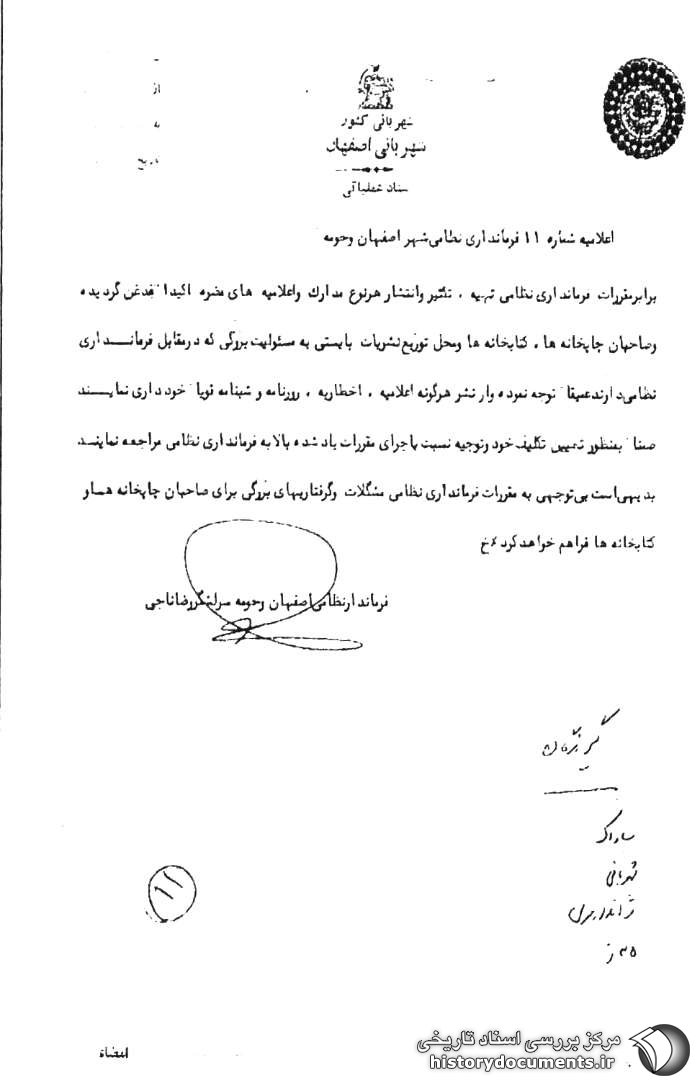 از
به
تاریخ
شهربانی کشور
شهربانی اصفهان
ستاد عملیاتی
اعلامیه شماره ۱۱ فرمانداری نظامی شهر اصفهان وحومه
برابرمقررات فرمانداری نظامی تهیه ، تکثیر وانتشار هرنوع مدارک واعلامیه های مضره اکیدا" قدغن گردیده
وصاحبان چاپخانه ها ، کتابخانه ها ومحل توزیع نشریات بایستی به مسئولیت بزرگی که درمقابل فرمانداری
نظامی دارند عمیقا" توجه نموده واز نشر هرگونه اعلامیه ، اخطاریه ، روزنامه و شبنامه قویا" خودداری نمایند
ضمنا" بمنظور تعیین تکلیف خود وتوجیه نسبت باجرای مقررات یاد شده بالا به فرمانداری نظامی مراجعه نمایند
بدیهی است بی توجهی به مقررات فرمانداری نظامی مشکلات وگرفتاریهای بزرگی برای صاحبان چاپخانه ها و
کتابخانه ها فراهم خواهد کرد
فرماندارنظامی اصفهان وحومه سرلشگر رضا ناجی
گیرندگان
ساواک
شهربانی
ژاندارمری
۱۱
امضاء
مرکز بررسی اسناد تاریخی
historydocuments.ir